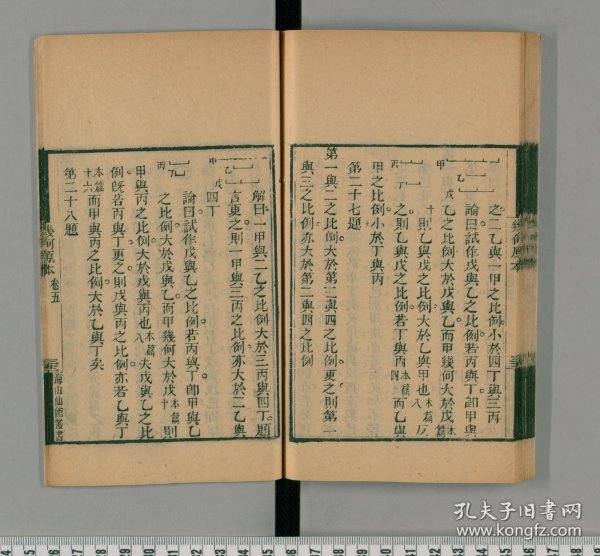 幾何原本
之二乙與一甲之比例小於四丁與三丙
論曰試作戊與乙之比例若丙與丁卽甲與
甲戊
乙之比例大於戊與乙而甲幾何大於戊本篇
十則乙與戊之比例大於乙與甲也本篇八反
丙丁
之則乙與戊之比例若丁與丙本篇四而乙與
甲之比例小於丁與丙
第二十七題
第一與二之比例大於第三與四之比例更之則第一
與三之比例亦大於第二與四之比例
解曰一甲與二乙之比例大於三丙與四丁題
甲乙戊
言更之則一甲與三丙之比例亦大於二乙與
四丁
論曰試作戊與乙之比例若丙與丁卽甲與乙
丙丁
之比例大於戊與乙而甲幾何大於戊本篇十則
甲與丙之比例大於戊與丙也本篇八夫戊與乙之比
例旣若丙與丁更之則戊與丙之比例亦若乙與丁
本篇十六而甲與丙之比例大於乙與丁矣
第二十八題
幾何原本 卷五
海山仙館叢書
孔夫子旧书网
www.kongfz.com